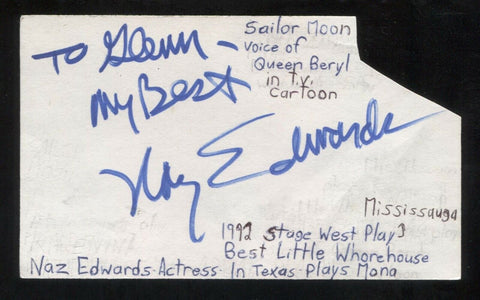 To Glenn -
My Best
Naz Edwards
Sailor Moon
voice of
Queen Beryl
in t.v.
cartoon
Mississauga
1992 Stage West Play
Best Little Whorehouse
Naz Edwards-Actress-In Texas-Plays Mona